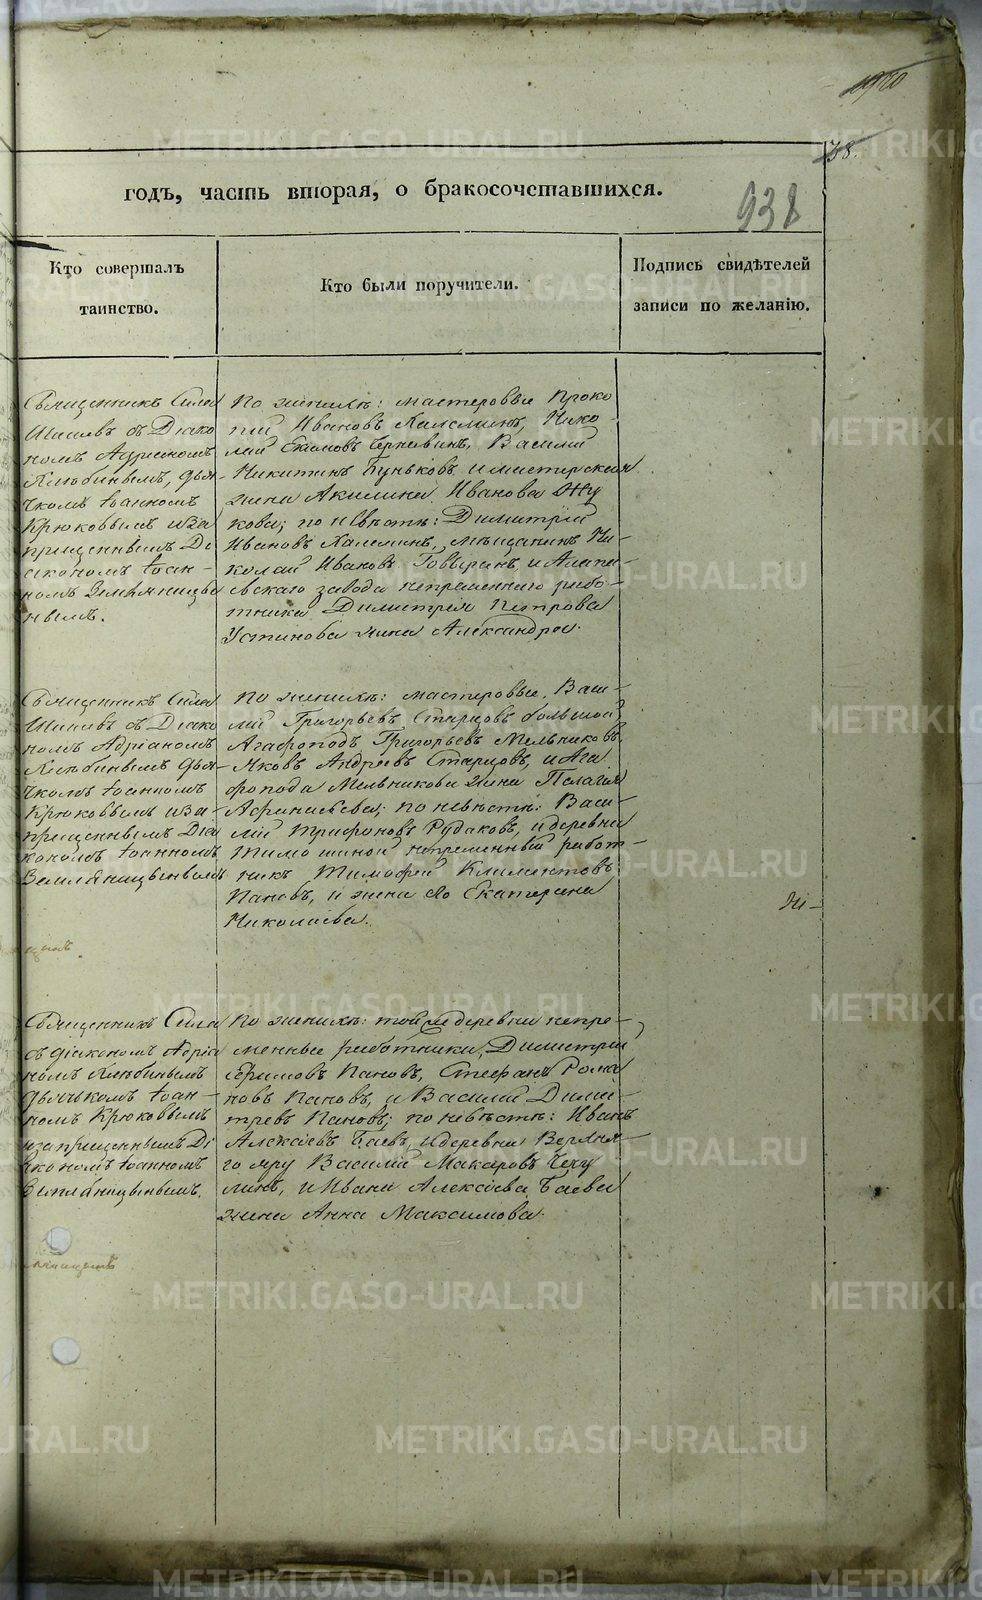 1920
38.
годъ, часть вторая, о бракосочетавшихся.
938
Кто совершалъ
таинство.
Кто были поручители.
Подпись свидѣтелей
записи по желанію.
Священникъ Сила
Шишевъ съ Діако
номъ Адріаномъ
Хлюбинымъ, дья-
чкомъ Іоанномъ
Крюковымъ и за
прещеннымъ Ді
акономъ Іоан-
номъ
нымъ.
По женихѣ: мастеровые Проко
пій Ивановъ Халеминъ, Нико-
лай Екимовъ Черновинъ, Василій
Никитинъ Буньковъ, и мастерская
жена Акилина Иванова Жу
кова; по невѣстѣ: Димитрій
Ивановъ Халеминъ, мѣщанинъ Ни-
колай Ивановъ Говыринъ, и Алапа-
евскаго завода непременнаго рабо-
тника Димитрія Петрова
Устинова жена Александра.
Священникъ Сила
Шишевъ съ Діако
номъ Адріаномъ
Хлюбинымъ дья-
чкомъ Іоанномъ
Крюковымъ и за-
прещеннымъ Діа
кономъ Іоанномъ
Земляницынымъ
По женихѣ: мастеровые, Васи-
лій Григорьевъ Старцовъ большой
Агафоподъ Григорьевъ Мельниковъ,
Яковъ Андреевъ Старцовъ, и Ага
фопода Мельникова жена Пелагія
Афанасьева; по невѣстѣ: Васи-
лій Трифоновъ Рудаковъ, и деревни
Тимошиной непременный работ-
никъ Тимофей Климентовъ
Пановъ, и жена его Екатерина
Николаева.
Священникъ Сила
съ діакономъ Адріа
номъ Хлюбинымъ
дьячькомъ Іоан-
номъ Крюковымъ
и запрещеннымъ Ді
акономъ Іоанномъ
Земляницынымъ.
По женихѣ: той же деревни непре-
менные работники, Димитрій
Ефимовъ Пановъ, Стефанъ Рома
новъ Пановъ, и Василій Дими-
тревъ Пановъ; по невѣстѣ: Иванъ
Алексѣевъ Баевъ, и деревни Верхня-
го яру Василій Макаровъ Чечу
линъ, и Ивана Алексѣева Баева
жена Анна Максимова.
METRIKI.GASO-URAL.RU